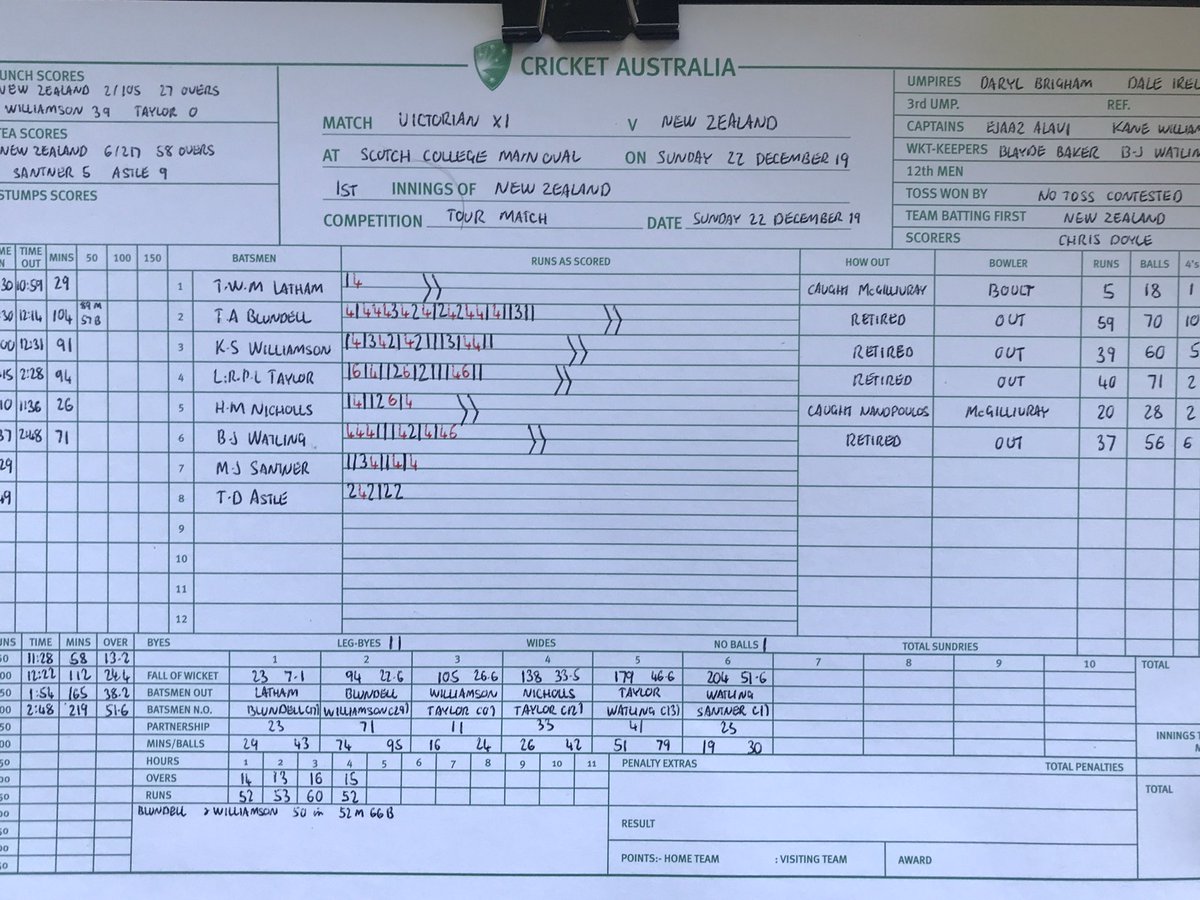 CRICKET AUSTRALIA
UNCH SCORES
NEW ZEALAND 2/105 27 OVERS
WILLIAMSON 39 TAYLOR 0
TEA SCORES
NEW ZEALAND 6/217 58 OVERS
SANTNER 5 ASTLE 9
STUMPS SCORES
MATCH VICTORIAN XI V NEW ZEALAND
AT SCOTCH COLLEGE MAIN OVAL ON SUNDAY 22 DECEMBER 19
1ST INNINGS OF NEW ZEALAND
COMPETITION TOUR MATCH DATE SUNDAY 22 DECEMBER 19
UMPIRES DARYL BRIGHAM DALE IREL
3rd UMP. REF.
CAPTAINS EJAAZ ALAVI KANE WILLIAM
WKT-KEEPERS BLAYDE BAKER B-J WATLIN
12th MEN
TOSS WON BY NO TOSS CONTESTED
TEAM BATTING FIRST NEW ZEALAND
SCORERS CHRIS DOYLE
ME N TIME OUT MINS 50 100 150 BATSMEN RUNS AS SCORED HOW OUT BOWLER RUNS BALLS 4's
30 10:59 29 1 T.W.M LATHAM 14 CAUGHT McGILLIVRAY BOULT 5 18 1
30 12:14 104 89 M 57 B 2 T.A BLUNDELL 4144434241242441411311 RETIRED OUT 59 70 10
00 12:31 91 3 K.S WILLIAMSON RETIRED OUT 39 60 5
15 2:28 94 4 L.R.P.L TAYLOR RETIRED OUT 40 71 2
10 1:36 26 5 H.M NICHOLLS 14112614 CAUGHT NANOPOULOS McGILLIVRAY 20 28 2
37 2:48 71 6 B.J WATLING 44411114214146 RETIRED OUT 37 56 6
29 7 M.J SANTNER 113411414
49 8 T.D ASTLE 242122
9
10
11
12
UNS TIME MINS OVER BYES LEG-BYES 11 WIDES NO BALLS 1 TOTAL SUNDRIES
50 11:28 58 13.2 1 2 3 4 5 6 7 8 9 10 TOTAL
00 12:22 112 24.4 FALL OF WICKET 23 7.1 94 22.6 105 26.6 138 33.5 179 46.6 204 51.6
50 1:54 165 38.2 BATSMEN OUT LATHAM BLUNDELL WILLIAMSON NICHOLLS TAYLOR WATLING
00 2:48 219 51.6 BATSMEN N.O. BLUNDELL WILLIAMSON (29) TAYLOR (0) TAYLOR (12) WATLING (13) SANTNER (1)
50 PARTNERSHIP 23 71 11 33 41 25
00 MINS/BALLS 29 43 74 95 16 24 26 42 51 79 19 30 INNINGS T
50 HOURS 1 2 3 4 5 6 7 8 9 10 11 PENALTY EXTRAS TOTAL PENALTIES
00 OVERS 14 13 16 15
50 RUNS 52 53 60 52 TOTAL
00 BLUNDELL & WILLIAMSON 50 in 52 M 66 B
50 RESULT
00
50 POINTS:- HOME TEAM : VISITING TEAM AWARD